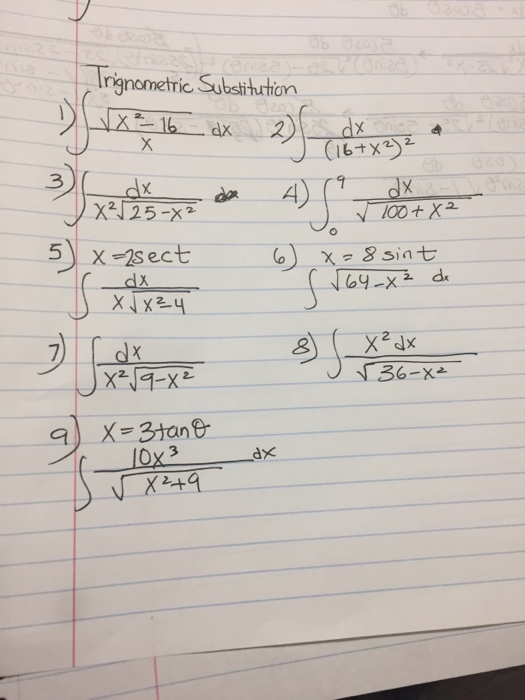 Trignometric Substitution
1) ∫ √(x²-16) / x dx 2) ∫ dx / (16+x²)²
3) ∫ dx / (x²√(25-x²)) 4) ∫₀⁹ dx / √(100+x²)
5) x=2sect 6) x = 8 sint
∫ dx / (x√(x²-4)) ∫ √(64-x²) dx
7) ∫ dx / (x²√(9-x²)) 8) ∫ x² dx / √(36-x²)
9) x=3tanθ
∫ 10x³ / √(x²+9) dx